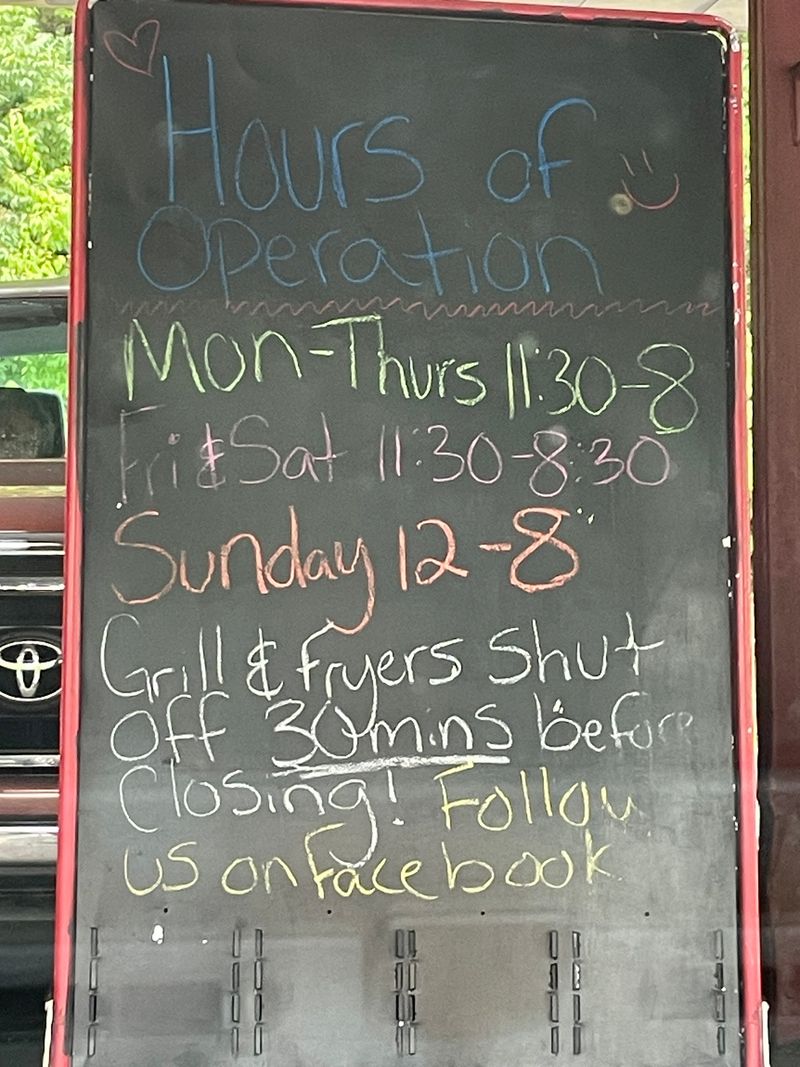 Hours of
Operation
Mon-Thurs 11:30-8
Fri & Sat 11:30-8:30
Sunday 12-8
Grill & Fryers Shut
off 30 mins before
Closing! Follow
us on Facebook